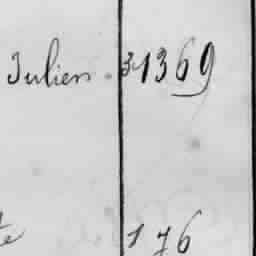 Julien. 31369
te 176